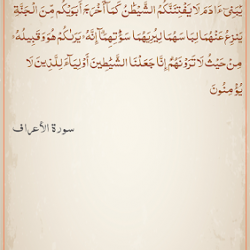 يَٰبَنِىٓ ءَادَمَ لَا يَفْتِنَنَّكُمُ الشَّيْطَٰنُ كَمَآ أَخْرَجَ أَبَوَيْكُم مِّنَ الْجَنَّةِ
يَنزِعُ عَنْهُمَا لِبَاسَهُمَا لِيُرِيَهُمَا سَوْءَٰتِهِمَآ إِنَّهُۥ يَرَىٰكُمْ هُوَ وَقَبِيلُهُۥ
مِنْ حَيْثُ لَا تَرَوْنَهُمْ إِنَّا جَعَلْنَا الشَّيَٰطِينَ أَوْلِيَآءَ لِلَّذِينَ لَا
يُؤْمِنُونَ
سورة الأعراف